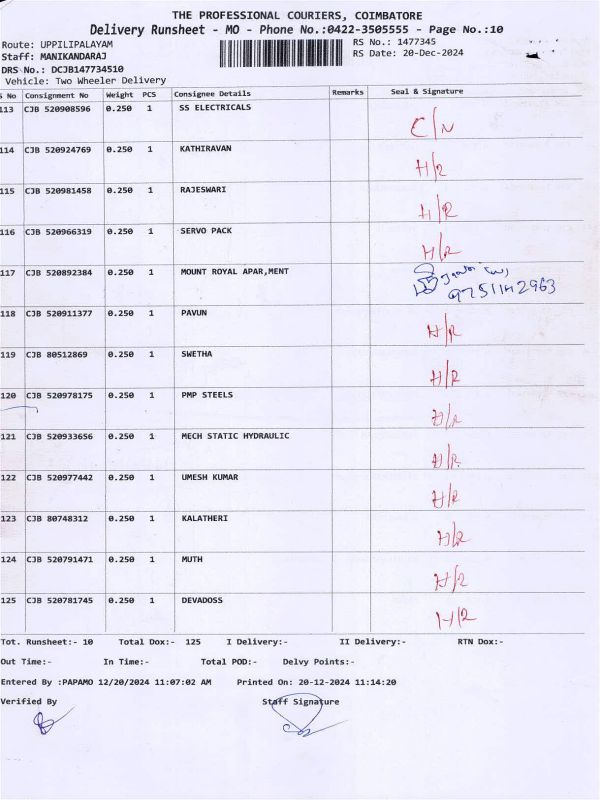 THE PROFESSIONAL COURIERS, COIMBATORE
Delivery Runsheet - MO - Phone No.:0422-3505555 - Page No.:10
Route: UPPILIPALAYAM
RS No.: 1477345
Staff: MANIKANDARAJ
RS Date: 20-Dec-2024
DRS No.: DCJB147734510
Vehicle: Two Wheeler Delivery
S No Consignment No Weight PCS Consignee Details Remarks Seal & Signature
113 CJB 520908596 0.250 1 SS ELECTRICALS C/N
114 CJB 520924769 0.250 1 KATHIRAVAN H/R
115 CJB 520981458 0.250 1 RAJESWARI H/R
116 CJB 520966319 0.250 1 SERVO PACK H/R
117 CJB 520892384 0.250 1 MOUNT ROYAL APAR,MENT
118 CJB 520911377 0.250 1 PAVUN H/R
119 CJB 80512869 0.250 1 SWETHA H/R
120 CJB 520978175 0.250 1 PMP STEELS H/R
121 CJB 520933656 0.250 1 MECH STATIC HYDRAULIC H/R
122 CJB 520977442 0.250 1 UMESH KUMAR H/R
123 CJB 80748312 0.250 1 KALATHERI H/R
124 CJB 520791471 0.250 1 MUTH H/R
125 CJB 520781745 0.250 1 DEVADOSS H/R
Tot. Runsheet:- 10 Total Dox:- 125 I Delivery:- II Delivery:- RTN Dox:-
Out Time:- In Time:- Total POD:- Delvy Points:-
Entered By :PAPAMO 12/20/2024 11:07:02 AM Printed On: 20-12-2024 11:14:20
Verified By Staff Signature